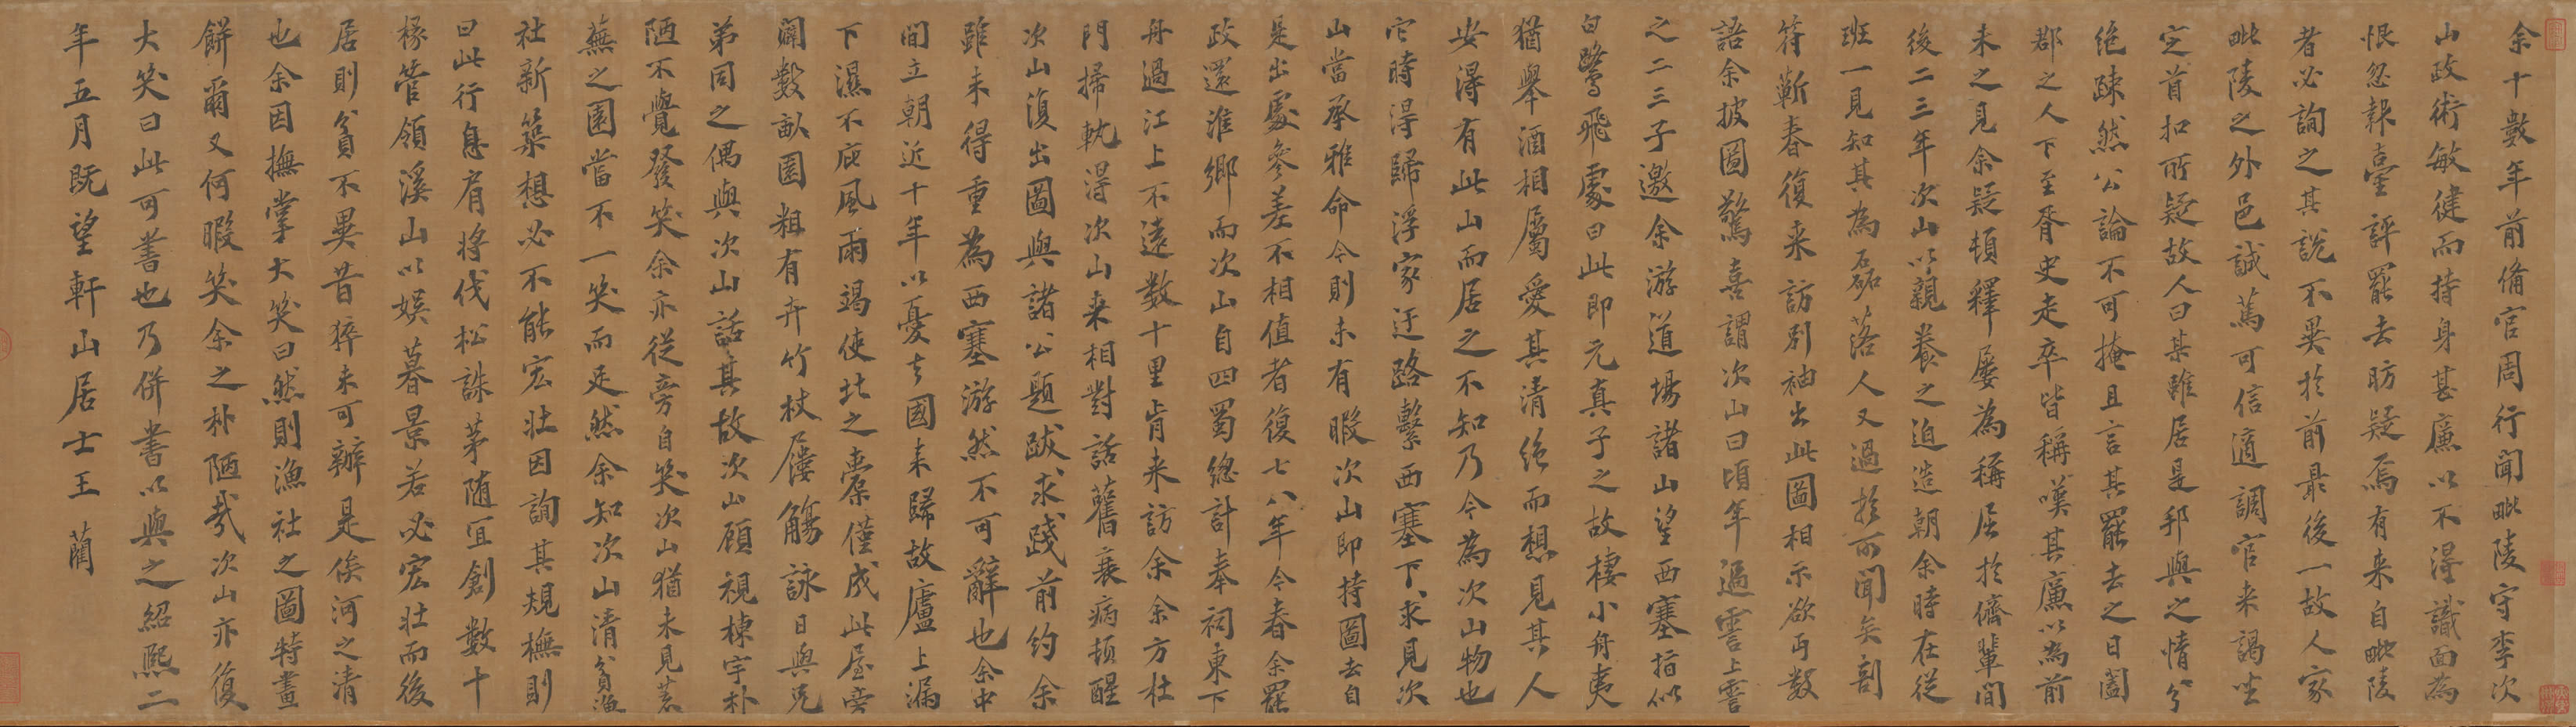 余十數年前備官周行聞毗陵守李次
山政術敏健而持身甚廉以不淂識面為
恨忽報臺評罷去昉疑焉有来自毗陵
者必詢之其說不異於前最後一故人家
毗陵之外邑誠篤可信適調官来謁坐
定首扣所疑故人曰某雖居是邦與之情分
絶踈然公論不可掩且言其罷去之日闔
郡之人下至胥史走卒皆稱嘆其廉以為前
未之見余疑頓釋屢為稱屈於儕輩間
後二三年次山以親養之迫造朝余時在從
班一見知其為磊落人又過於所聞矣剖
符蘄春復来訪別袖出此圖相示欲丐數
語余披圖驚喜謂次山曰頃年過霅上霅
之二三子邀余游道場諸山望西塞指似
白鷺飛處曰此即元真子之故棲小舟夷
猶舉酒相屬愛其清絶而想見其人
安淂有此山而居之不知乃今為次山物也
它時淂歸浮家迂路繫西塞下求見次
山當承雅命今則未有暇次山即持圖去自
是出處參差不相值者復七八年今春余罷
政還淮鄉而次山自四蜀總計奉祠東下
舟過江上不遠數十里肯来訪余余方杜
門掃軌淂次山来相對話舊衰病頓醒
次山復出圖與諸公題跋求踐前約余
雖未得重為西塞游然不可辭也余中
間立朝近十年以憂去國来歸故廬上漏
下濕不庇風雨竭使北之槖僅成此屋旁
闢數畝園粗有卉竹杖屨觴詠日與兄
弟同之偶與次山話其故次山顧視棟宇朴
陋不覺發笑余亦從旁自笑次山猶未見荒
蕪之園當不一笑而足然余知次山清貧漁
社新築想必不能宏壯因詢其規橅則
曰此行息肩将伐松誅茅随宜創數十
椽管領溪山以娱暮景若必宏壯而後
居則貧不異昔猝未可辦是俟河之清
也余因撫掌大笑曰然則漁社之圖特畫
餅爾又何暇笑余之朴陋哉次山亦復
大笑曰此可書也乃併書以與之紹熙二
年五月既望軒山居士王藺